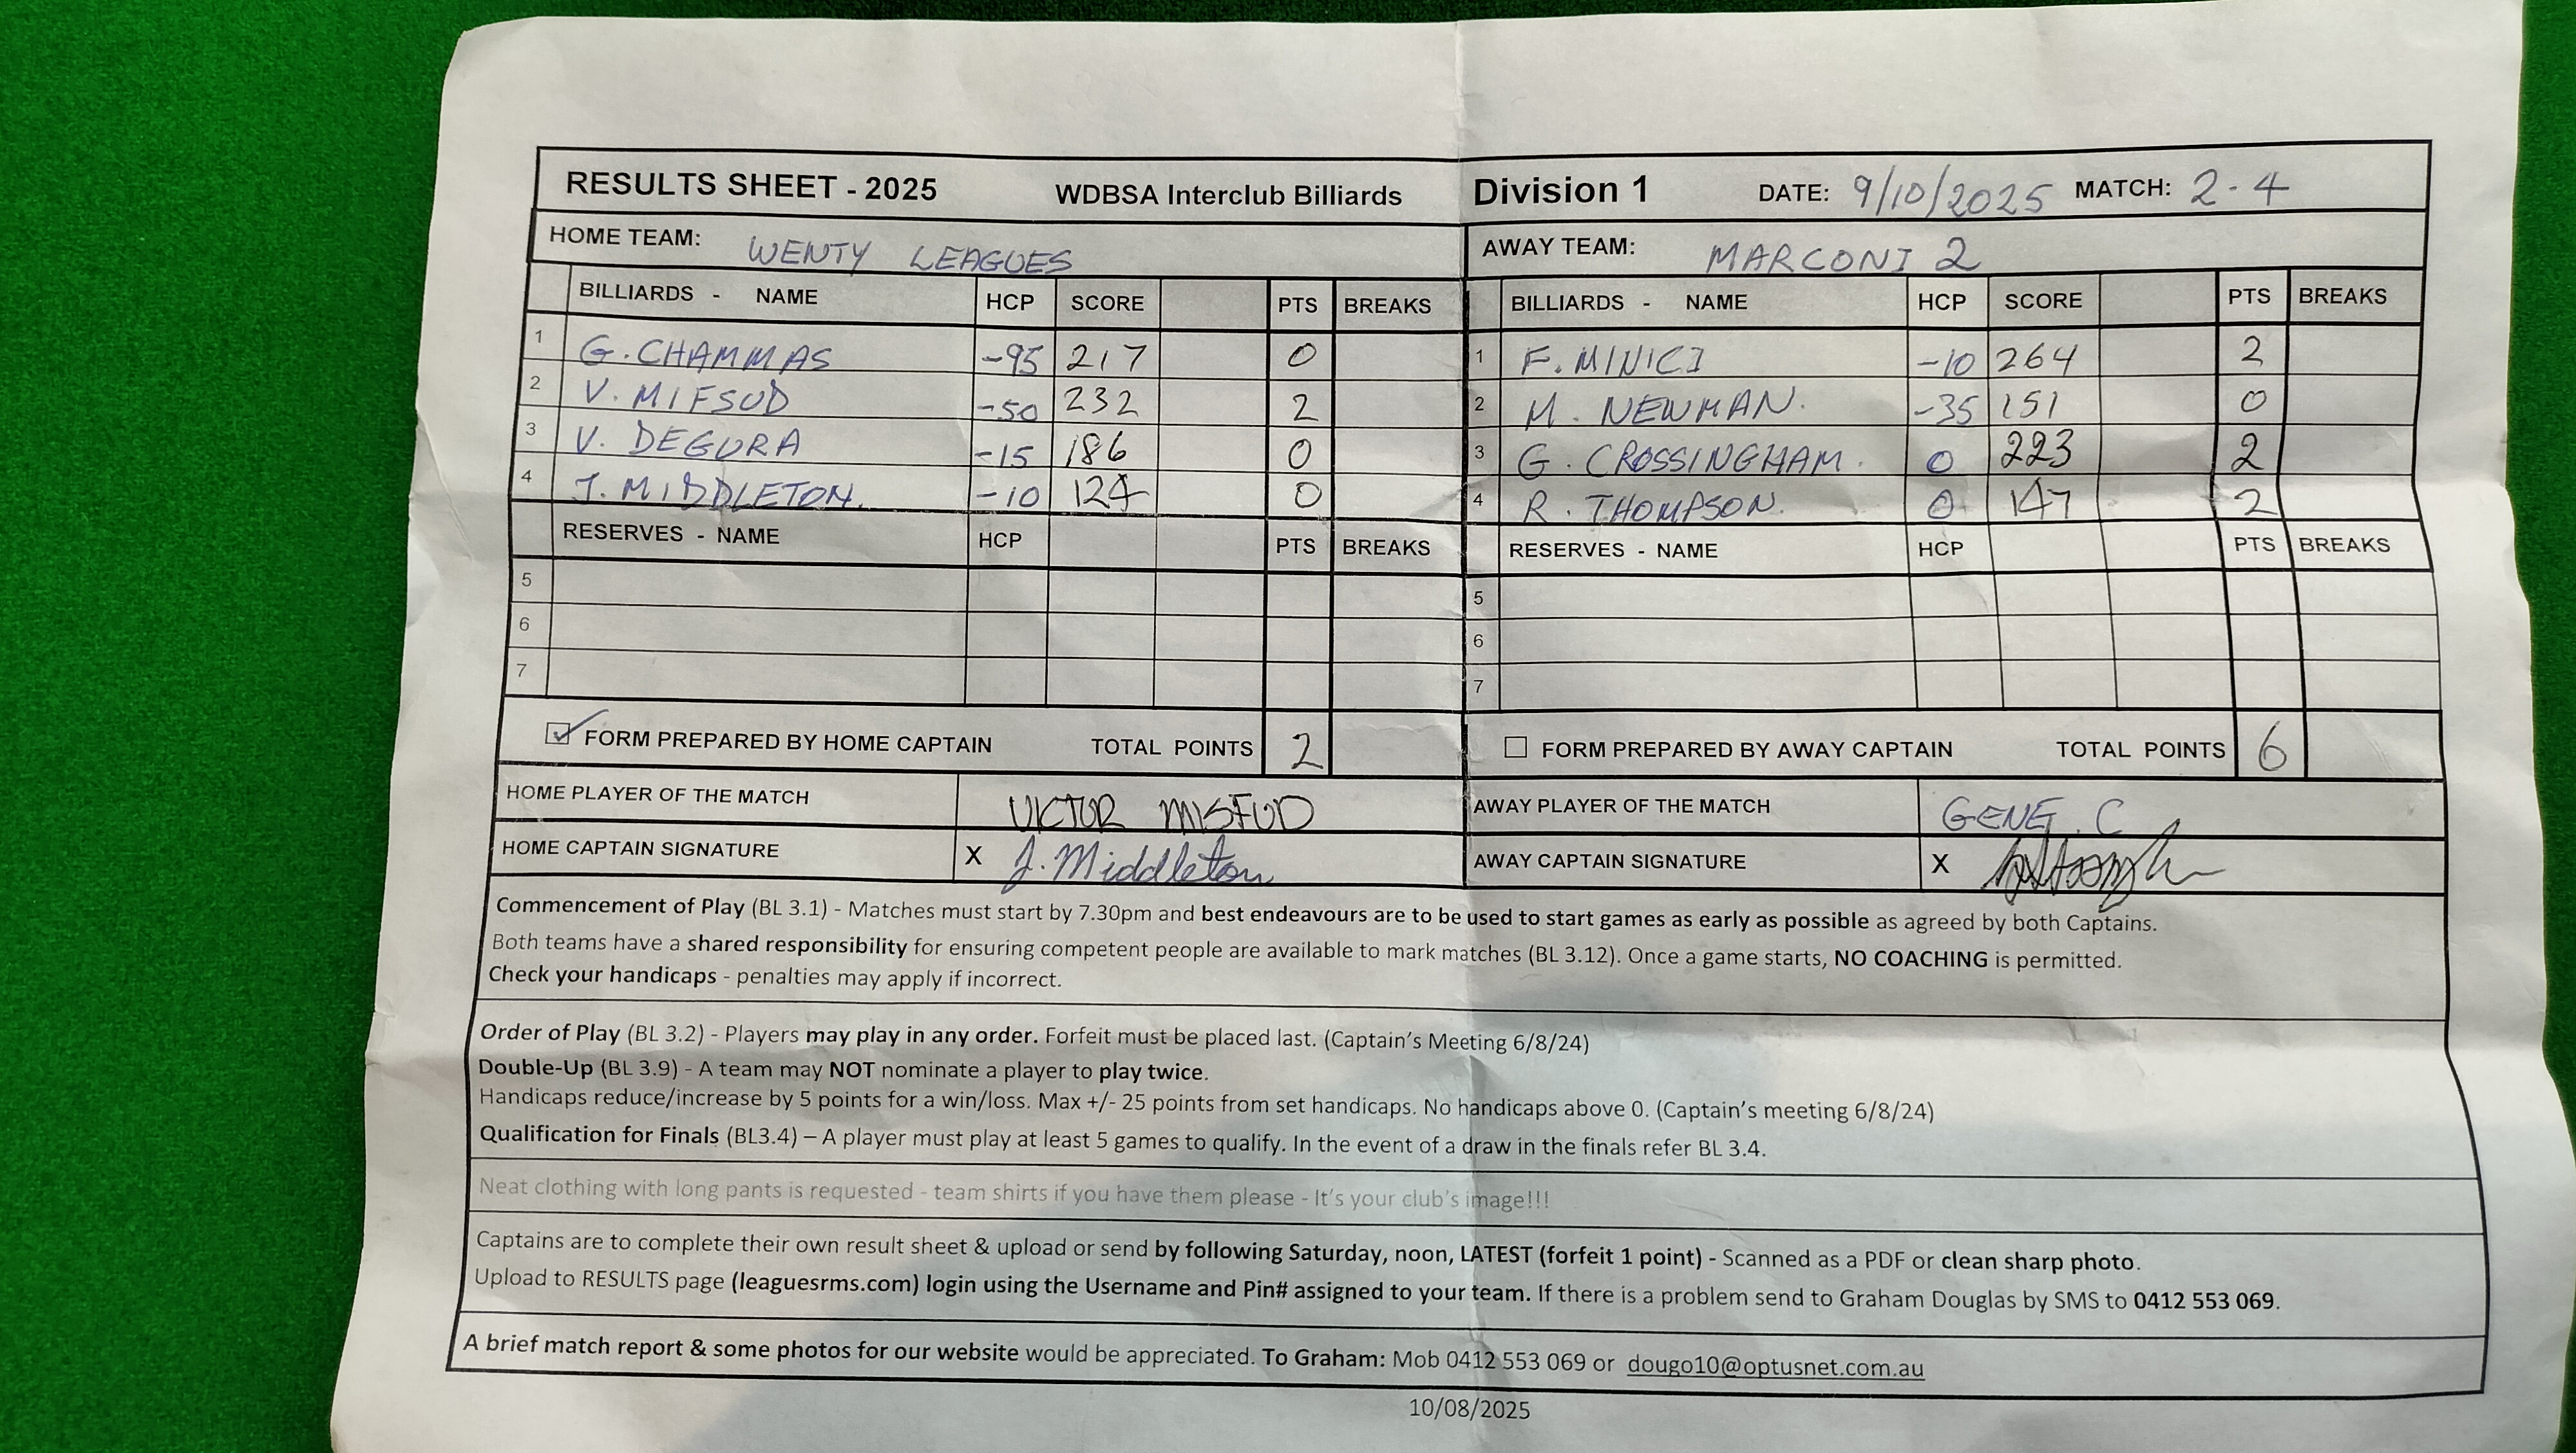 RESULTS SHEET - 2025 WDBSA Interclub Billiards Division 1 DATE: 9/10/2025 MATCH: 2-4
HOME TEAM: WENTY LEAGUES AWAY TEAM: MARCONI 2
BILLIARDS - NAME HCP SCORE PTS BREAKS BILLIARDS - NAME HCP SCORE PTS BREAKS
1 G. CHAMMAS -95 217 0 1 F. MINICI -10 264 2
2 V. MIFSUD -50 232 2 2 M. NEWMAN. -35 151 0
3 V. DEGURA -15 186 0 3 G. CROSSINGHAM. 0 223 2
4 J. MIDDLETON. -10 124 0 4 R. THOMPSON. 0 147 2
RESERVES - NAME HCP PTS BREAKS RESERVES - NAME HCP PTS BREAKS
5 5
6 6
7 7
☑ FORM PREPARED BY HOME CAPTAIN TOTAL POINTS 2 ☐ FORM PREPARED BY AWAY CAPTAIN TOTAL POINTS 6
HOME PLAYER OF THE MATCH VICTOR MISFUD AWAY PLAYER OF THE MATCH GENE. C
HOME CAPTAIN SIGNATURE X J. Middleton AWAY CAPTAIN SIGNATURE X
Commencement of Play (BL 3.1) - Matches must start by 7.30pm and best endeavours are to be used to start games as early as possible as agreed by both Captains.
Both teams have a shared responsibility for ensuring competent people are available to mark matches (BL 3.12). Once a game starts, NO COACHING is permitted.
Check your handicaps - penalties may apply if incorrect.
Order of Play (BL 3.2) - Players may play in any order. Forfeit must be placed last. (Captain's Meeting 6/8/24)
Double-Up (BL 3.9) - A team may NOT nominate a player to play twice.
Handicaps reduce/increase by 5 points for a win/loss. Max +/- 25 points from set handicaps. No handicaps above 0. (Captain's meeting 6/8/24)
Qualification for Finals (BL3.4) – A player must play at least 5 games to qualify. In the event of a draw in the finals refer BL 3.4.
Neat clothing with long pants is requested - team shirts if you have them please - It's your club's image!!!
Captains are to complete their own result sheet & upload or send by following Saturday, noon, LATEST (forfeit 1 point) - Scanned as a PDF or clean sharp photo.
Upload to RESULTS page (leaguesrms.com) login using the Username and Pin# assigned to your team. If there is a problem send to Graham Douglas by SMS to 0412 553 069.
A brief match report & some photos for our website would be appreciated. To Graham: Mob 0412 553 069 or dougo10@optusnet.com.au
10/08/2025